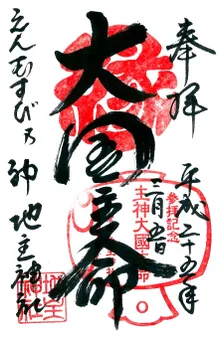 奉拝
平成二十五年
三月五日
大国主命
えんむすびの神 地主神社
参拝記念
主神大國主命
地主神社